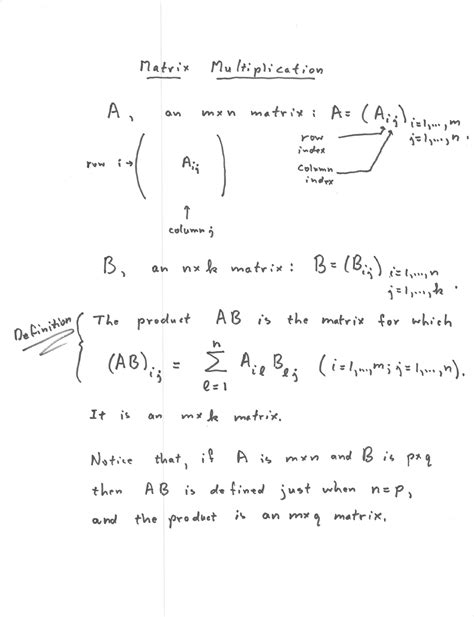 Matrix Multiplication
A, an m×n matrix: A = (A_ij) i=1,...,m
j=1,...,n.
row index
column index
row i → ( A_ij )
↑
column j
B, an n×k matrix: B = (B_ij) i=1,...,n
j=1,...,k.
Definition
The product AB is the matrix for which
(AB)_ij = ∑_{ℓ=1}^{n} A_iℓ B_ℓj (i=1,...,m; j=1,...,n).
It is an m×k matrix.
Notice that, if A is m×n and B is p×q
then AB is defined just when n=p,
and the product is an m×q matrix.